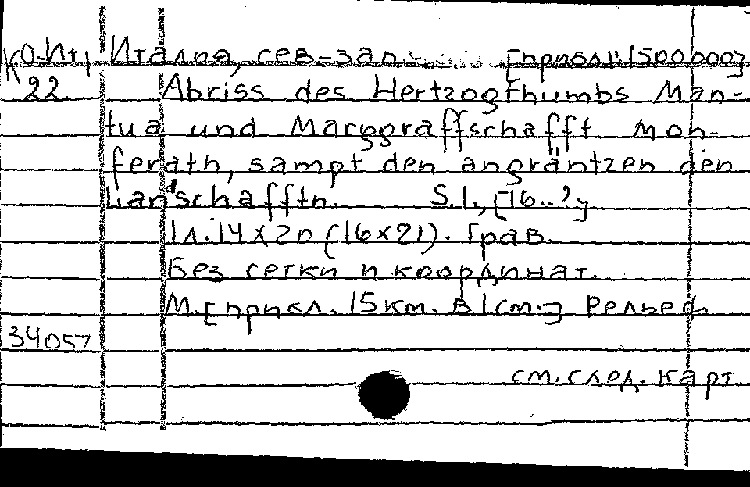 КО-Ит/ Италия, сев-зап. [прибл.1:1500000]
22 Abriss des Hertzogthumbs Man-
tua und Marggraffschafft Mon-
ferath, sampt den angräntzen den
Lan'schafftn. S.l., [16..?]
1л. 14x20 (16x21). Грав.
Без сетки и координат.
М. [прибл. 15км. в 1см.] Рельеф.
34057
см. след. карт